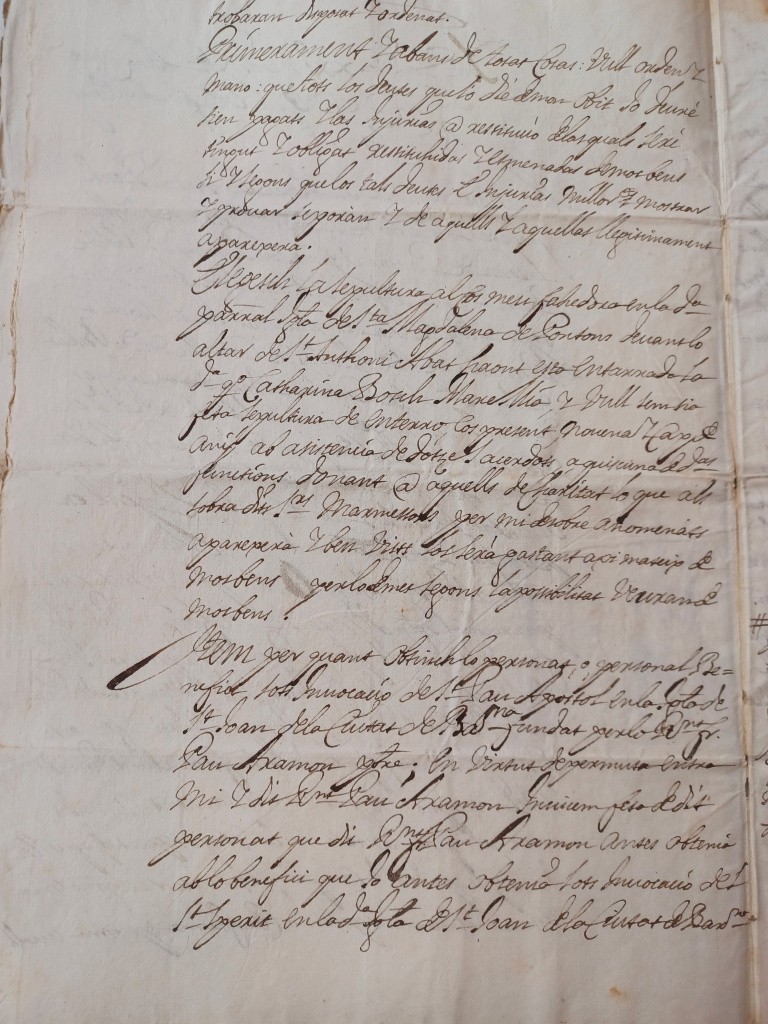 trobaran disposat y ordenat.
Primerament y abans de totas cosas: Vull orden y
mano: que tots los deutes que lo die de mon obit jo deuré
sien pagats y las injurias a restitució de las quals seré
tingut y obligat restituhidas y esmenadas de mos bens
si y segons que los tals deutes e injurias millor mostrar
y provar se poran y de aquells y aquellas llegitimament
aparexera.
Elegesch la sepultura al cos meu fahedora en la da
parral Iglã de Sta Magdalena de Pontons devant lo
altar de St Anthoni Abat hahont esta enterrada la
Da qo Catharina Bosch Mare Mia, y Vull sem sia
feta sepultura de enterro, cos present, Novena y Cap de
any ab asistencia de dotze sacerdots, a quiscuna de das
functions donant a aquells de Charitat lo que als
sobra dits Srs Marmessors per mi desobre anomenats
aparexerà y ben vist los serà gastant axi mateix de
mos bens per lo demes segons la possibilitat veuran de
mos bens.
Item per quant obtinch lo personat, o, personal Be=
nefici, sots invocació de St Pau Apostol en la Iglã de
St Joan de la Ciutat de Barna fundat per lo Rnt Sr.
Pau Aramon pre; En virtut de permuta entre
mi y dit Rnt Pau Aramon invicem feta de dit
personat que dit Rnt Sr Pau Aramon antes obtenia
ab lo benefici que Jo antes obtenia sots invocació del
St Sperit en la da Iglã de St Joan de la Ciutat de Barna